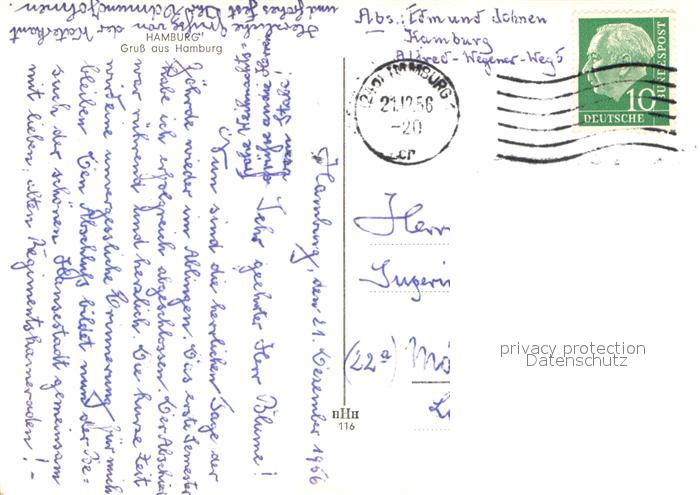 HAMBURG
Gruß aus Hamburg
Hamburg, den 21. Dezember 1956
Sehr geehrter Herr Blume!
Nun sind die herrlichen Tage der
Föhrde wieder im Ablingen. Das erste Semester
habe ich erfolgreich abgeschlossen. Der Abschied
war rührend und herzlich. Die kurze Zeit
wird eine unvergessliche Erinnerung für mich
bleiben. Den Abschluß bildet nun der Be-
such der schönen Hansestadt gemeinsam
mit lieben, alten Regimentskameraden! -
Frohe Weihnacht +
Herzliche Grüße von der Waterkant
und frohes Fest Ihr Edmund Johnen.
Abs.: Edmund Johnen
Hamburg
Alfred-Wegener-Weg 5
(24a) HAMBURG
21.12.56
-20
DEUTSCHE
BUNDESPOST
10
Herr
Ingeni
(22a) Mö
HHH
116
privacy protection
Datenschutz